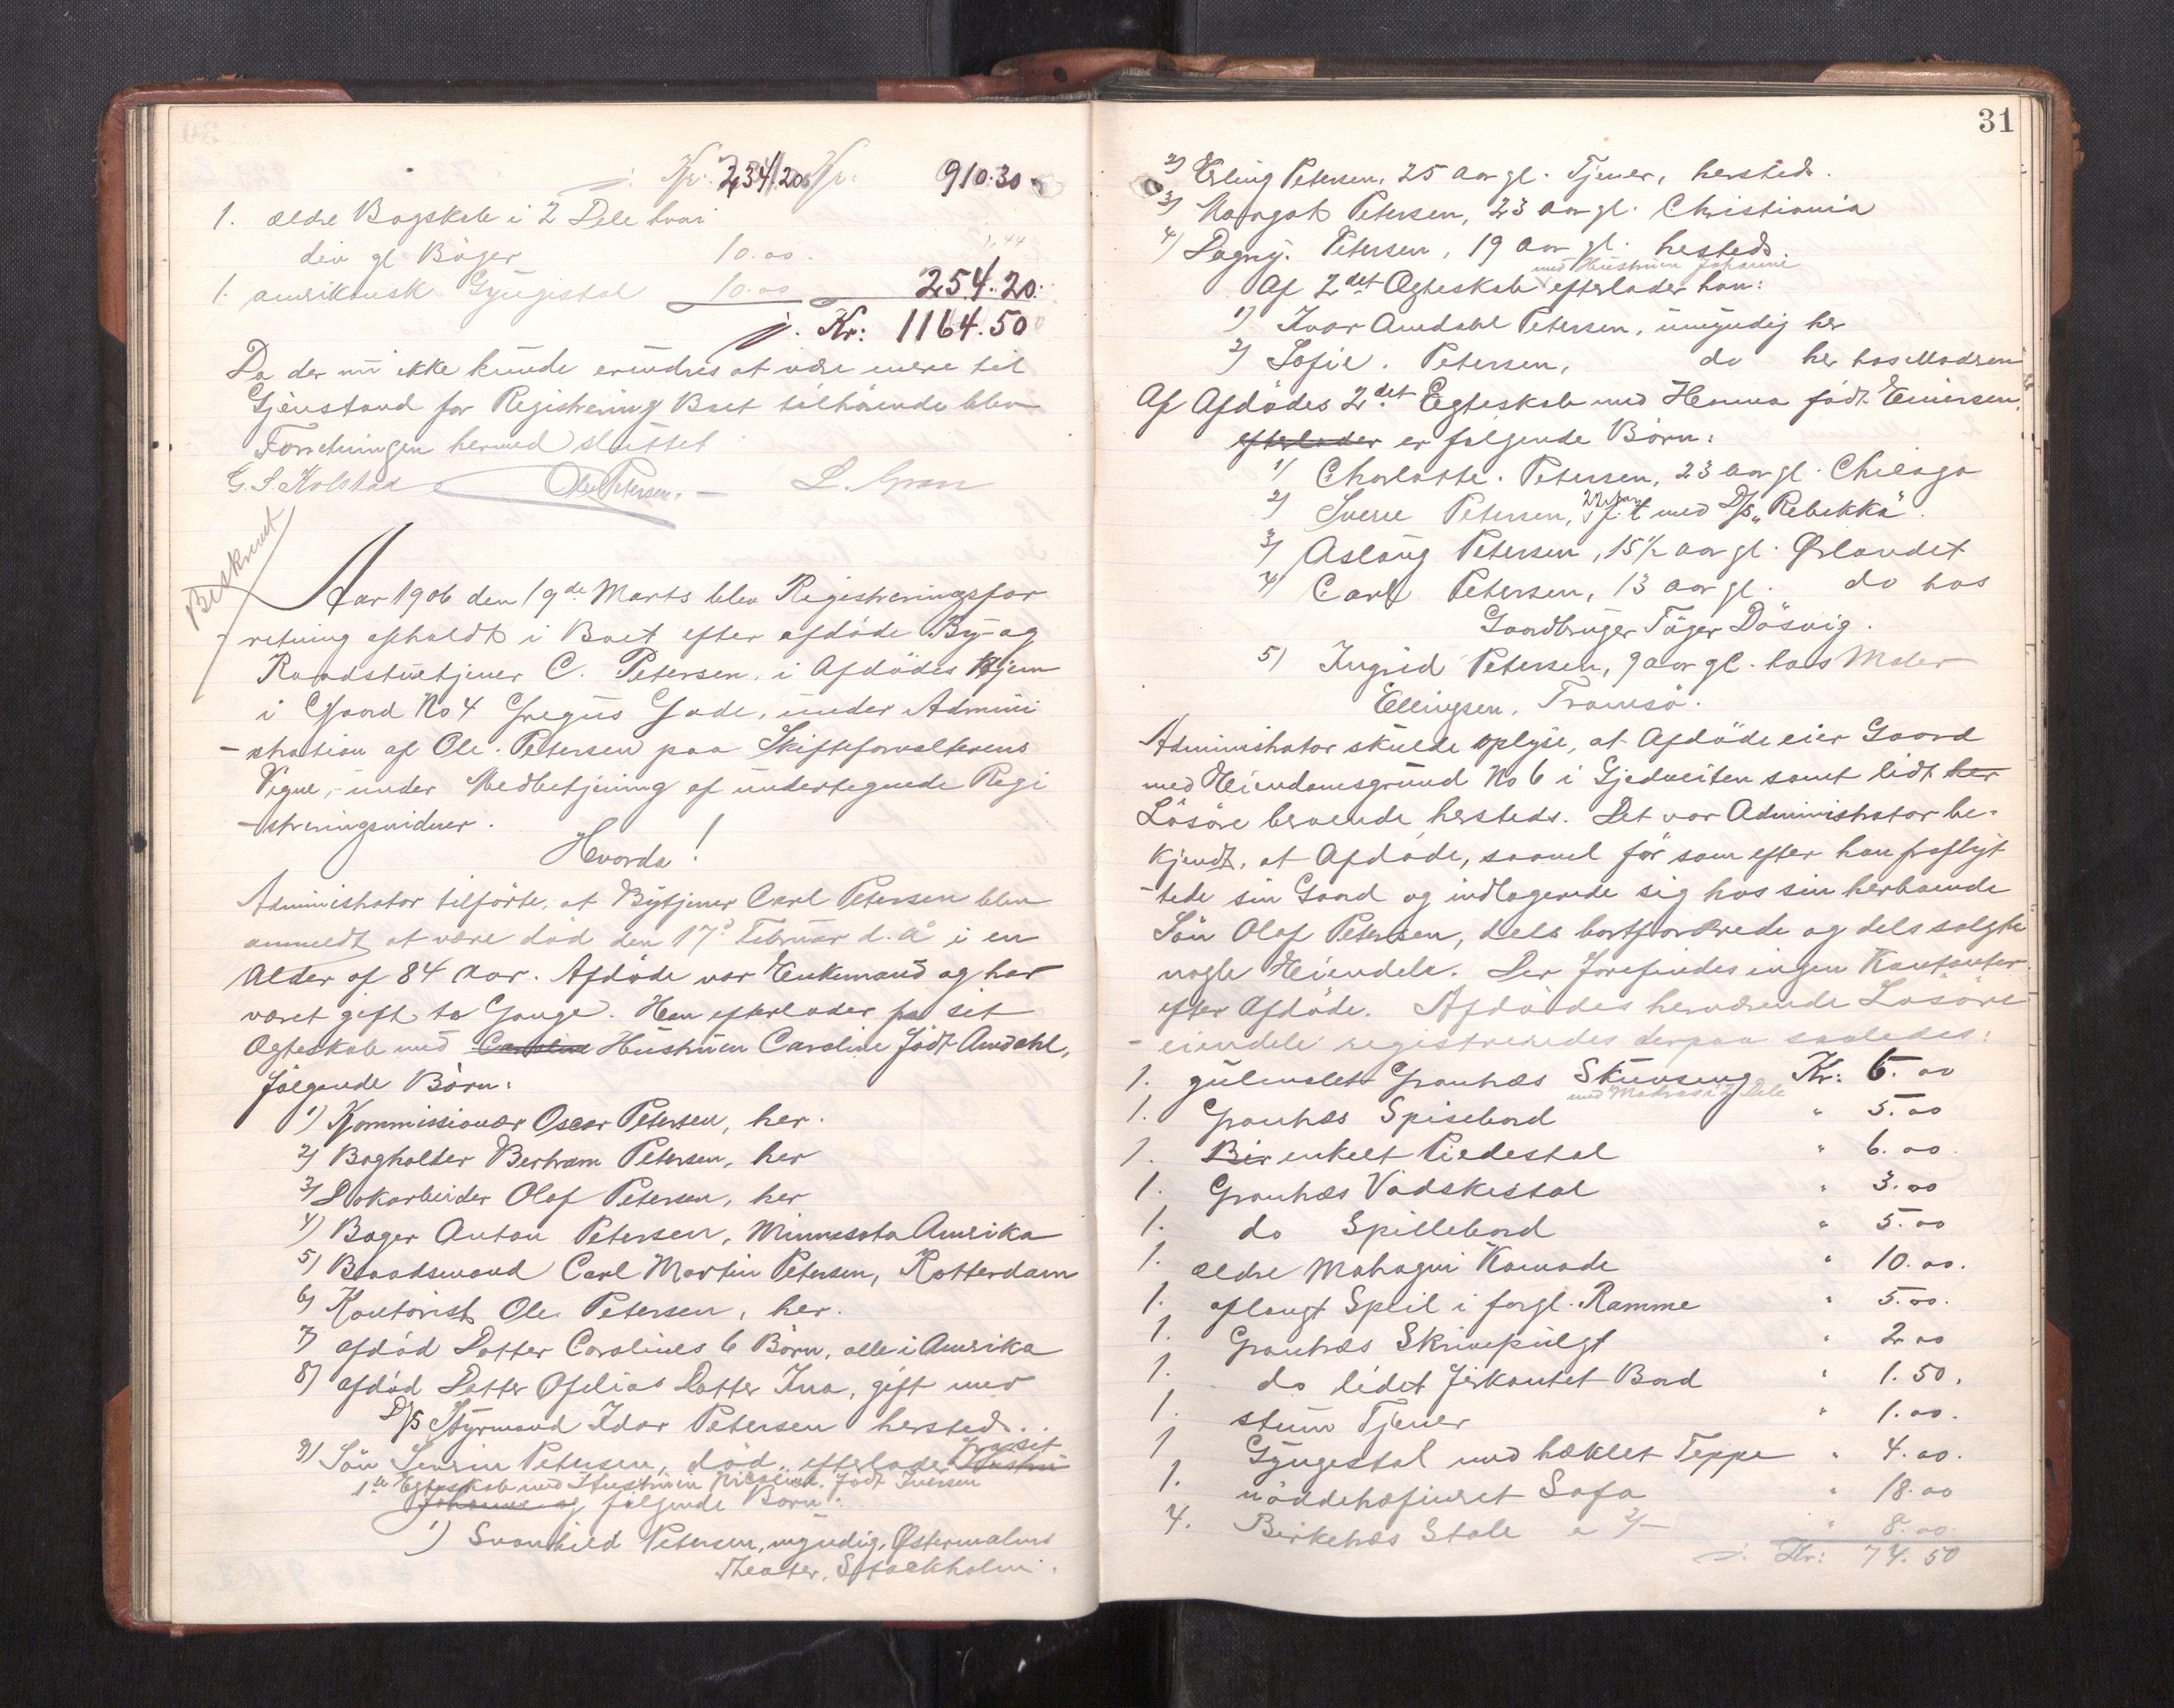 Kr. 234.20 Kr. 910.30
1. ældre Bogskab i 2 Dele hvori
div gl Bøger 10.00
1. amerikansk Gyngestol 10.00 254.20.
Kr: 1164.50
Da der nu ikke kunde erindres at være mere til
Gjenstand for Registrering Boet tilhørende blev
Forretningen hermed sluttet
G. S. Kolstad Ole Petersen. L. Gran
Beskrevet
Aar 1906 den 19de Marts blev Registreringsfor
retning afholdt i Boet efter afdøde By- og
Raadstuetjener C. Petersen, i Afdødes Hjem
i Gaard No 4 Gregus Gade, under Admini
-stration af Ole Petersen paa Skifteforvalterens
Vegne, under Medbetjening af undertegnede Regi
-streringsvidner.
Hvorda!
Administrator tilførte, at Bytjener Carl Petersen blev
anmeldt at være død den 17de Februar d. å i en
Alder af 84 Aar. Afdøde var Enkemand og har
været gift to Gange. Han efterlader fra sit
Ægteskab med Caroline Hustruen Caroline født Amdahl,
følgende Børn:
1) Kommissionær Oscar Petersen, her.
2) Bogholder Bertram Petersen, her
3) Dokarbeider Olaf Petersen, her
4) Bager Anton Petersen, Minnesota Amerika
5) Baadsmand Carl Martin Petersen, Rotterdam
6) Kontorist Ole Petersen, her.
7) afdød Datter Carolines 6 Børn, alle i Amerika
8) afdød Datter Ofelias Datter Ina, gift med
D/S Styrmand Idar Petersen hersteds.
9) Søn Petersen, død, efterlader Hustru fra sit
1ste Egteskab med Hustruen Nicoline født Iversen
Johanne og følgende Børn:
1) Svanhild Petersen, myndig, Østermalms
Theater, Stockholm.
31
2) Erling Petersen, 25 Aar gl. Tjener, hersteds.
3) Margot Petersen, 23 Aar gl. Christiania
4) Dagny Petersen, 19 Aar gl. hersteds.
med Hustruen Johanne
Af 2det Ægteskab efterlader han:
1) Ivar Amdahl Petersen, umyndig her
2) Sofie Petersen, do her hos Modren
Af Afdødes 2det Egteskab med Hanna født Einersen,
efterlader er følgende Børn:
1) Charlotte Petersen, 23 Aar gl. Chicago
2) Sverre Petersen, 22 Aar f. t med D/S "Rebekka".
3) Aslaug Petersen, 15½ Aar gl. Ørlandet
4) Carl Petersen, 13 Aar gl. do hos
Gaardbruger Døsvig.
5) Ingrid Petersen, 9 Aar gl. hos Maler
Ellingsen, Tromsø.
Administrator skulde oplyse, at Afdøde eier Gaard
med Eiendomsgrund No 6 i Gjedveiten samt lidt her
Løsøre beroende hersteds. Det var Administrator be-
kjendt, at Afdøde, saavel før som efter han fraflyt
-tede sin Gaard og indlogerede sig hos sin herboende
Søn Olaf Petersen, dels bortforærede og dels solgte
nogle Eiendele. Der forefindes ingen Kontanter
efter Afdøde. Afdødes herværende Løsøre
-eiendele registreredes derpaa saaledes:
1. gulmalet Grantræs Skuvseng Kr: 6.00
med Madras i 2 Dele
1. Grantræs Spisebord " 5.00
1. Bir enkelt Piedestal " 6.00
1. Grantræs Vadskestol " 3.00
1. do Spillebord " 5.00
1. ældre Mahogni Komode " 10.00.
1. aflangt Speil i forgl. Ramme " 5.00.
1. Grantræs Skrivepulgt " 2.00
1. do lidet firkantet Bord " 1.50.
1. stum Tjener " 1.00.
1 Gyngestol med hæklet Teppe " 4.00.
1. nøddetræfineret Sofa " 18.00
4. Birketræs Stole a 2/- " 8.00.
Kr: 74.50